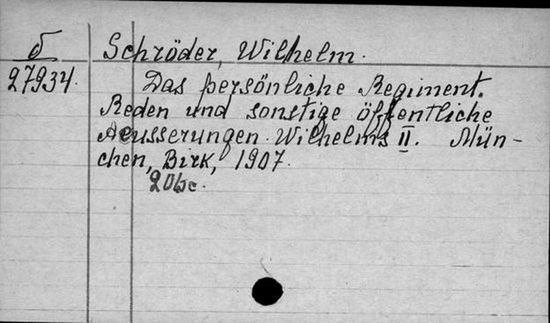 Schröder, Wilhelm.
27934.
Das persönliche Regiment.
Reden und sonstige öffentliche
Aeusserungen Wilhelms II. Mün-
chen, Birk, 1907.